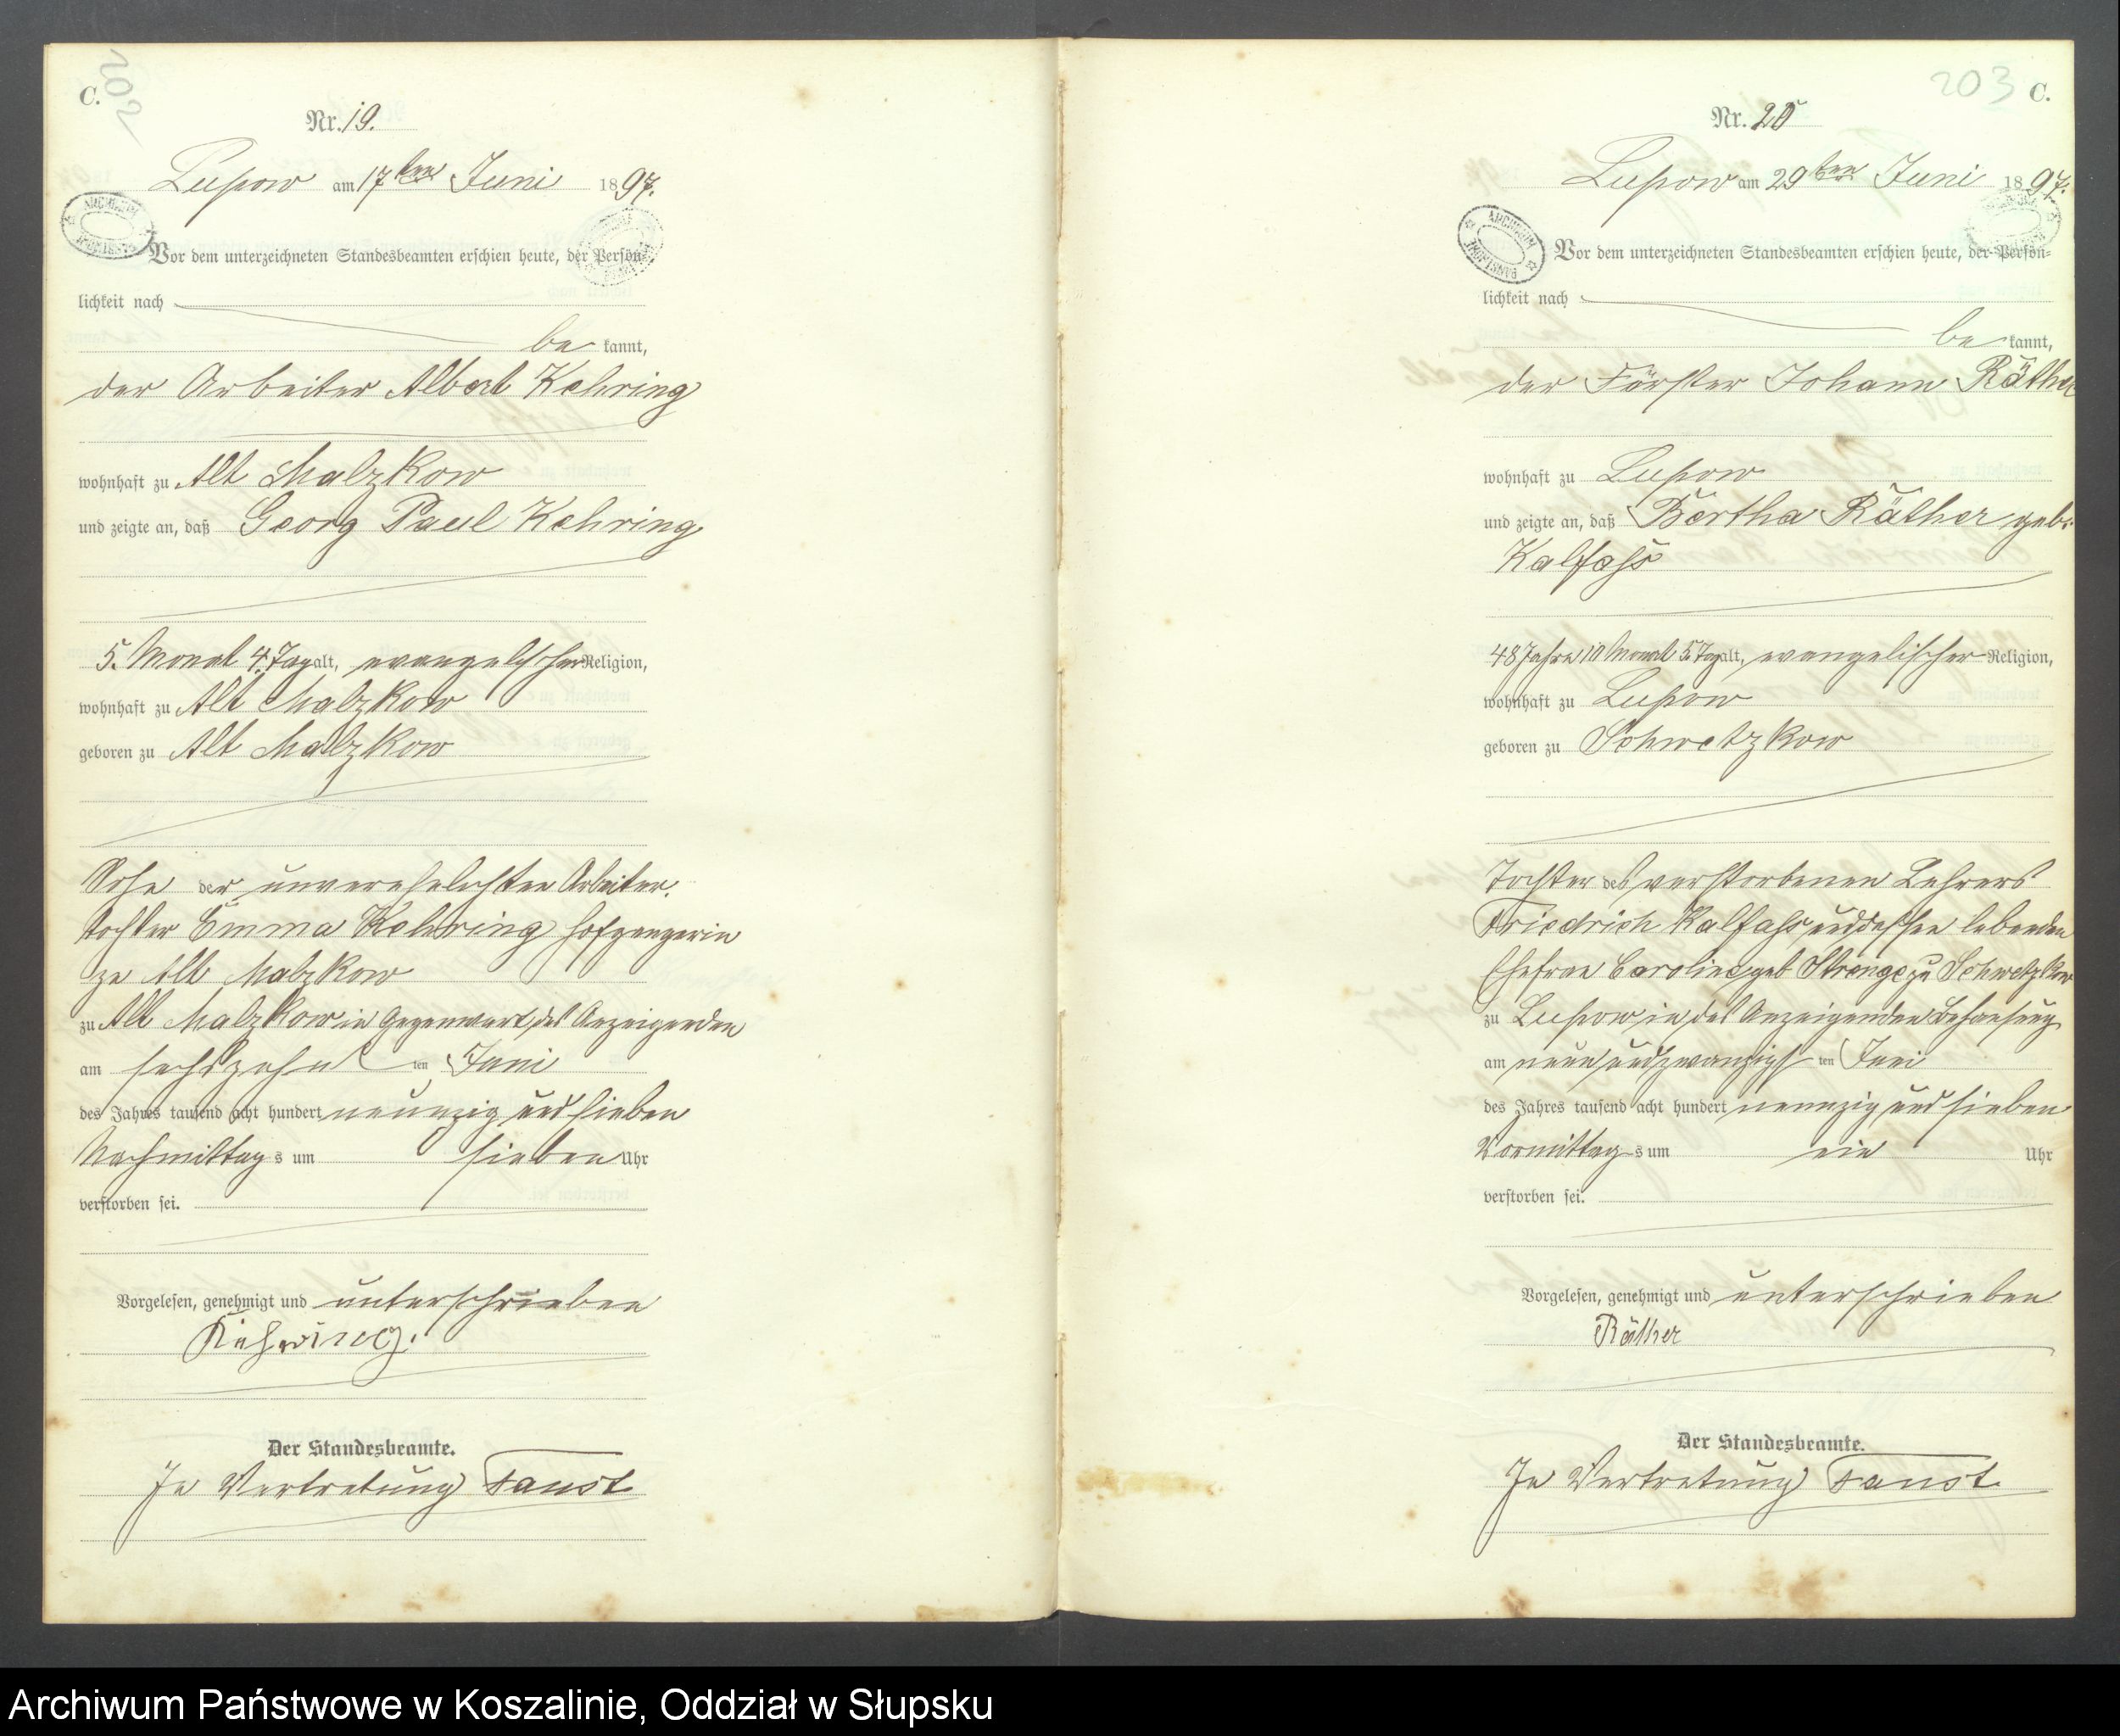 C.
202
Nr. 19.
Lupow am 17ten Juni 1897.
Vor dem unterzeichneten Standesbeamten erschien heute, der Persön-
lichkeit nach
be kannt,
der Arbeiter Albert Kehring
wohnhaft zu Alt Malzkow
und zeigte an, daß Georg Paul Kehring
5. Monat 4. Tag alt, evangelischer Religion,
wohnhaft zu Alt Malzkow
geboren zu Alt Malzkow
Sohn der unverehelichten Arbeiter-
tochter Emma Kehring Hofgengerin
zu Alt Malzkow
zu Alt Malzkow in Gegenwart des Anzeigenden
am sechszehn ten Juni
des Jahres tausend acht hundert neunzig und sieben
Nachmittag s um sieben Uhr
verstorben sei.
Vorgelesen, genehmigt und unterschrieben
Kehring.
Der Standesbeamte.
In Vertretung Faust
203 C.
Nr. 20
Lupow am 29ten Juni 1897.
ARCHIWUM PAŃSTWOWE
Vor dem unterzeichneten Standesbeamten erschien heute, der Persön-
lichkeit nach
be kannt,
der Förster Johann Räther
wohnhaft zu Lupow
und zeigte an, daß Bertha Räther geb.
Kalfahs
48 Jahre 10 Monat 5. Tag alt, evangelischer Religion,
wohnhaft zu Lupow
geboren zu Schwetzkow
Tochter des verstorbenen Lehrers
Friedrich Kalfahs und dessen lebenden
Ehefrau Caroline geb Strenge zu Schwetzkow
zu Lupow in des Anzeigenden Behausung
am neun und zwanzigs ten Juni
des Jahres tausend acht hundert neunzig und sieben
Vormittag s um ein Uhr
verstorben sei.
Vorgelesen, genehmigt und unterschrieben
Räther
Der Standesbeamte.
In Vertretung Faust
Archiwum Państwowe w Koszalinie, Oddział w Słupsku